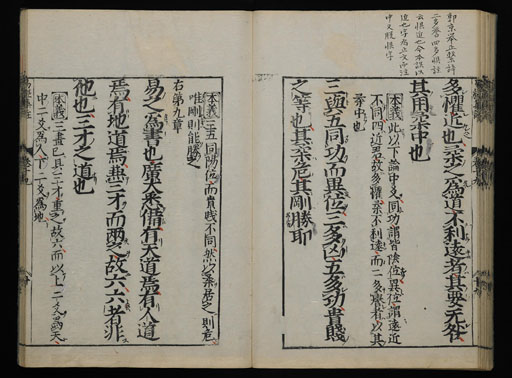 郭京舉正繫詞
二多譽四多懼註
云懼近也今本誤以
近也字爲正文而注
中又脫懼字
多懼近也柔之爲道不利遠者其要无咎
其用柔中也
本義此以下論中爻同功謂皆陰位異位謂遠近
不同四近君故多懼柔不利遠而二多譽者以其
柔中也
三與五同功而異位三多凶五多功貴賤
之等也其柔危其剛勝耶
本義三五同陽位而貴賤不同然以柔居之則危
唯剛則能勝之
右第九章
易之爲書也廣大悉備有天道焉有人道
焉有地道焉兼三才而兩之故六六者非
他也三才之道也
本義三畫已具三才重之故六而以上二爻爲天
中二爻爲人下二爻爲地